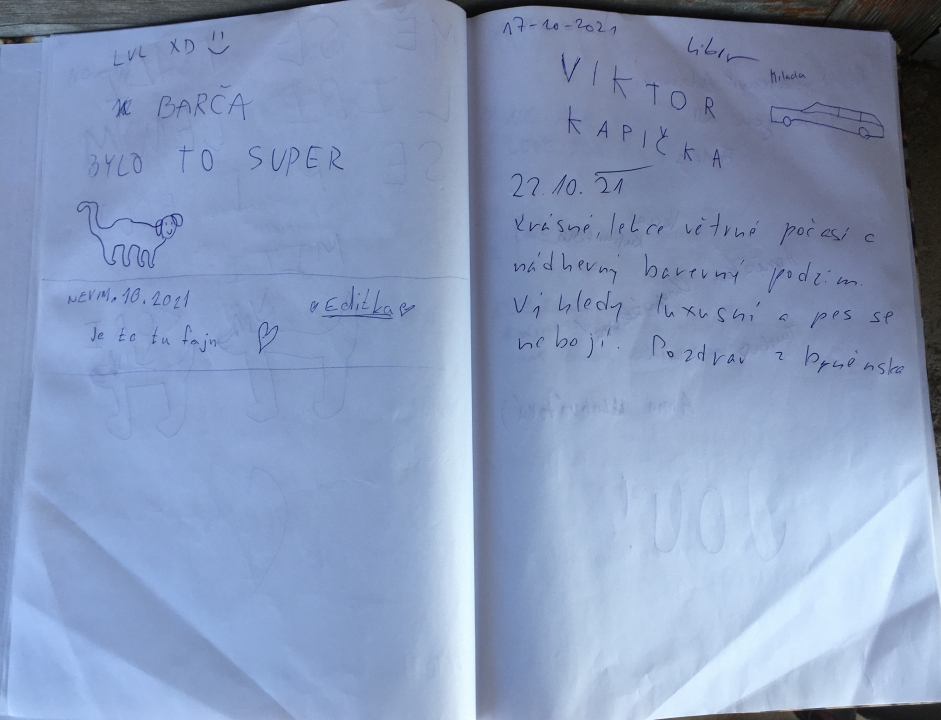 LVL XD
BARČA
BYLO TO SUPER
NEVIM.10.2021
Editka
Je to tu fajn
17-10-2021
Libor
Milada
VIKTOR
KAPIČKA
22.10.21
Krásné, lehce větrné počasí a
nádherný barevný podzim.
Výhledy luxusní a pes se
nebojí. Pozdrav z